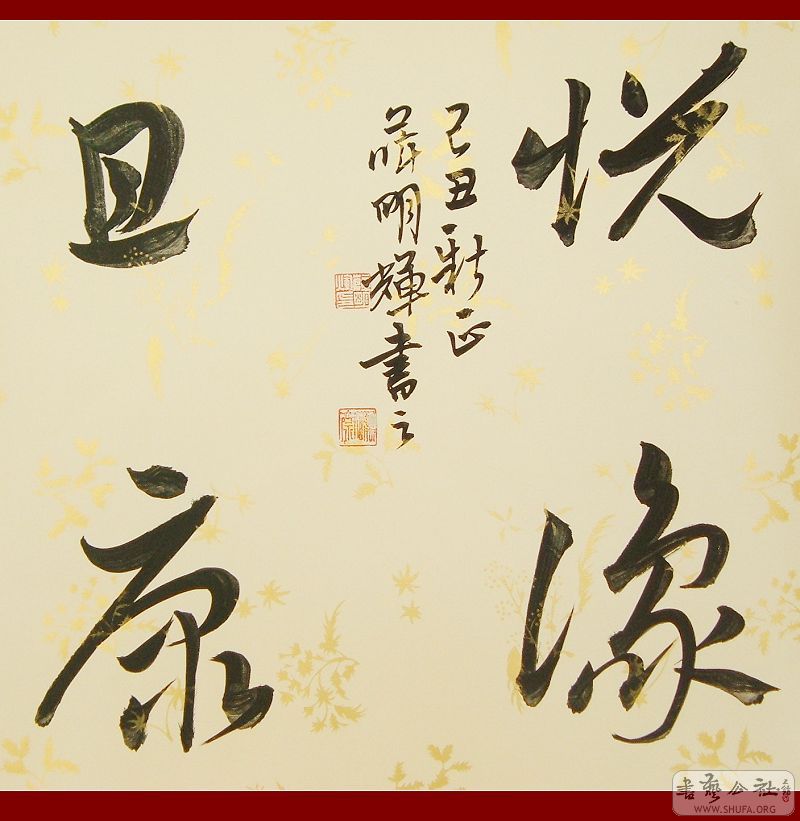 悦豫
己丑新正
明輝書之
且康
書藝公社
WWW.SHUFA.ORG